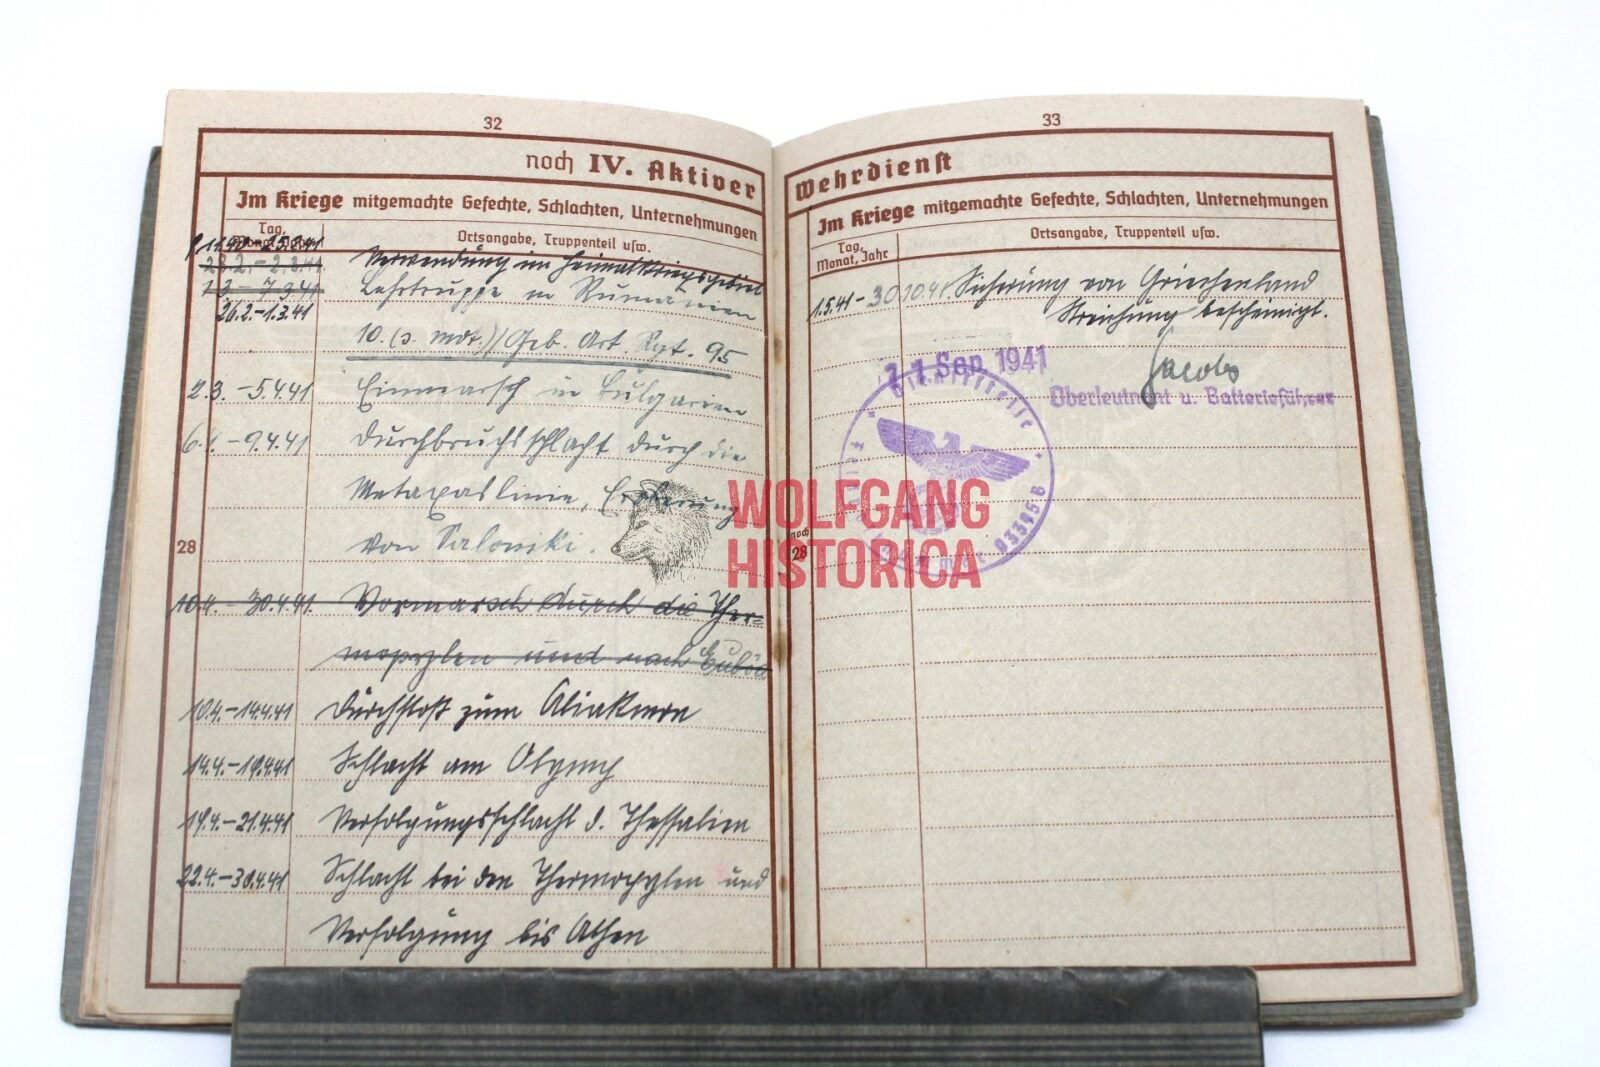 32
noch IV. Aktiver
Im Kriege mitgemachte Gefechte, Schlachten, Unternehmungen
Tag, Ortsangabe, Truppenteil usw.
1.11.40 - 25.2.41 Verwendung im Heimatkriegsgebiet
28.2. - 2.3.41 Lehrtruppe in Rumänien
1.3. - 7.3.41
26.2. - 1.3.41
10. (s. mot.)/Geb. Art. Rgt. 95
2.3. - 5.4.41 Einmarsch in Bulgarien
6.4. - 9.4.41 Durchbruchsschlacht durch die
Metaxaslinie, Eroberung
28 von Saloniki.
10.4. - 30.4.41. Vormarsch durch die Ther=
mopylen und nach Euböa
10.4. - 14.4.41 Durchstoß zum Aliakmon
14.4. - 19.4.41 Schlacht am Olymp
19.4. - 21.4.41 Verfolgungsschlacht d. Thessalien
22.4. - 30.4.41 Schlacht bei den Thermopylen und
Verfolgung bis Athen
33
Wehrdienst
Im Kriege mitgemachte Gefechte, Schlachten, Unternehmungen
Tag, Monat, Jahr Ortsangabe, Truppenteil usw.
1.5.41 - 30.10.41. Sicherung von Griechenland
Streichung bescheinigt.
Sep. 1941
Jacobs
Oberleutnant u. Batterieführer
Dienststelle
03395 B
noch
28
WOLFGANG
HISTORICA